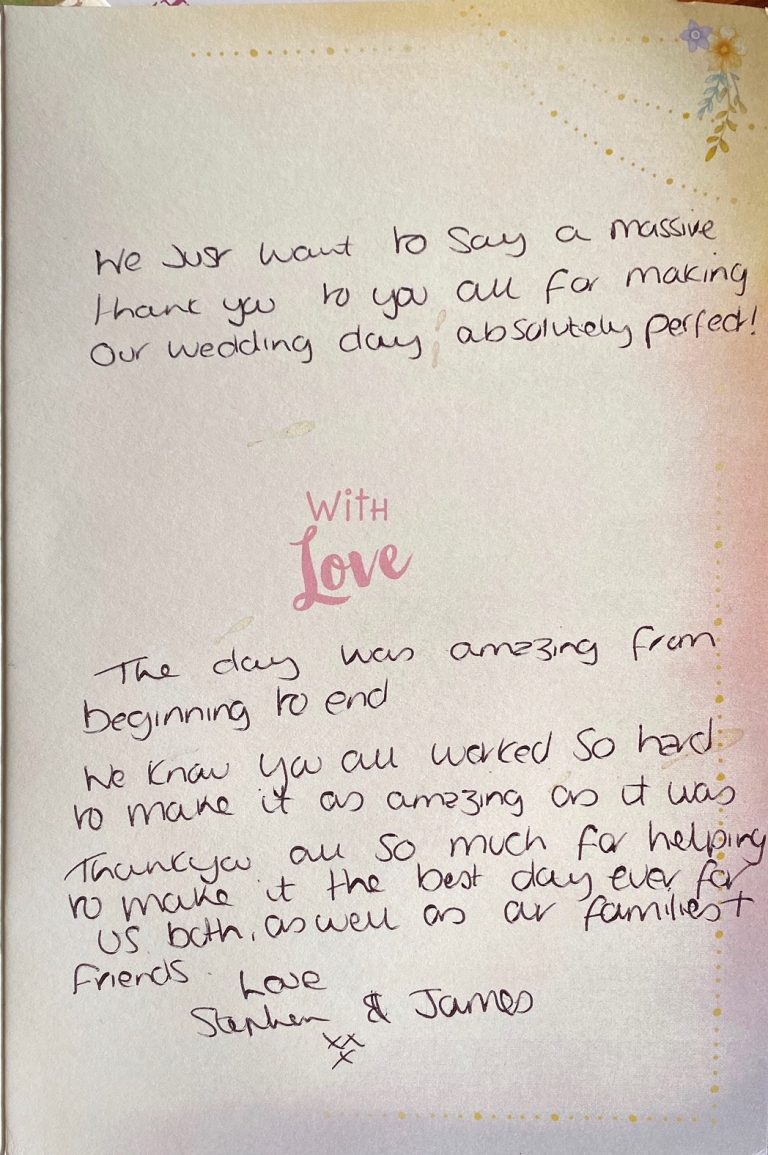 We Just want to say a massive
thank you to you all for making
Our wedding day absolutely perfect!
With
Love
The day was amazing from
beginning to end
We know you all worked so hard
to make it as amazing as it was
Thankyou all so much for helping
to make it the best day ever for
us both, as well as our families +
friends.
Love
Stephen & James
xx
x